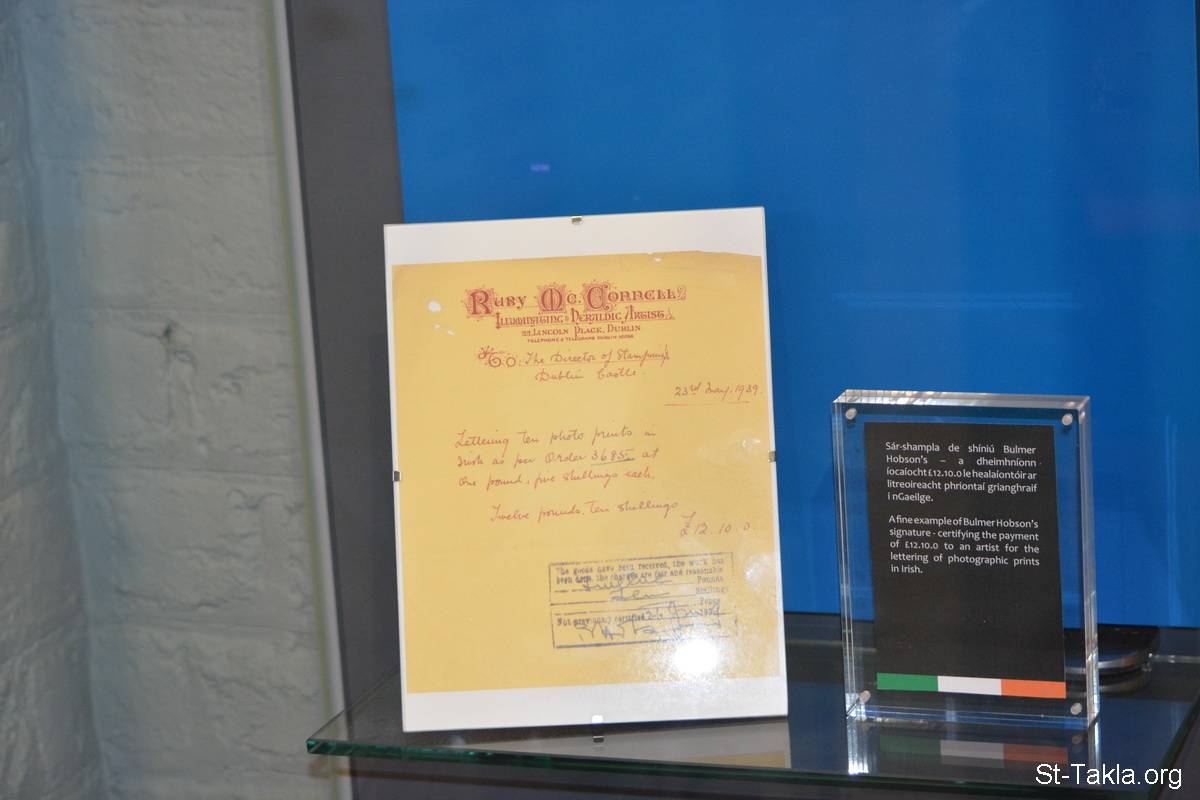 Ruby Mc. Connell
Illuminating & Heraldic Artist
Lincoln Place, Dublin
To: The Director of Stamping
Dublin Castle.
23rd May, 1939.
Lettering ten photo prints in
Irish as per Order 3685 at
One pound, five shillings each.
Twelve pounds, ten shillings
£12.10.0.
The goods have been received, the work has
been done, the charges are fair and reasonable
Twelve Pounds
Ten Shillings
Pence
Not previously certified
Sár-shampla de shíniú Bulmer
Hobson's – a dheimhníonn
íocaíocht £12.10.0 le healaíontóir ar
litreoireacht phriontaí grianghraif
i nGaeilge.
A fine example of Bulmer Hobson's
signature - certifying the payment
of £12.10.0 to an artist for the
lettering of photographic prints
in Irish.
St-Takla.org